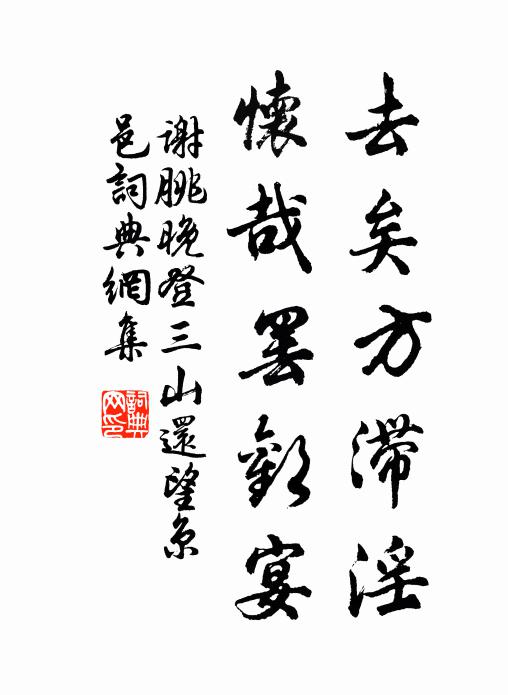 去矣方滞淫
懷哉罢歡宴
谢朓晚登三山還望京
邑詞典網集
詞典网印